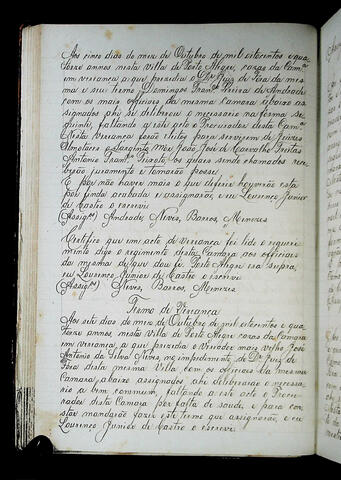 Aos cinco dias do mez de Outubro de mil oitocentos e qua
torze annos nesta Villa de Porto Alegre, cazas da Camrª
em vereança a que prezidio o Dr Juiz de Fora da mes
ma e seu termo Domingos Franco Pereira de Andrade
com os mais officiaes da mesma Camara abaixo as
signados ahi se deliberou o necessario na forma se
guinte, faltando a este acto o Procurador desta Camª
Nesta vereança forão eleitos para servirem de Juizes
Almotaces o Sargento Mor João José de Carvalho Freitas
Antonio Francº os quaes sendo chamados rece
berão juramento e tomarão posse
E por não haver mais o que deferir houverão esta
por finda acabada e assignarão, e eu Lourenço Junior
de Castro o escrevi
(Assigdos) Andrade, Neves, Barros, Menezes
Certifico que em acto de vereança foi lido o requeri
mento digo o regimento desta Camara aos officiaes
da mesma de que dou fé Porto Alegre era supra,
eu Lourenço Junior de Castro o escrevi
(Assigdos) Neves, Barros, Menezes
Termo de Vereança
Aos sete dias do mez de Outubro de mil oitocentos e qua
torze annos, nesta Villa de Porto Alegre cazas da Camara
em vereança a que prezidio o Vereador mais velho José
Antonio da Silva Neves, no impedimento do Dr Juiz de
Fora desta mesma Villa com os officiaes da mesma
Camara, abaixo assignados ahi deliberarão o necessa
rio a bem commum, faltando a este acto o Procu
rador desta Camara por falta de saude, e para con
star mandarão fazer este termo que assignarão, e eu
Lourenço Junior de Castro o escrevi